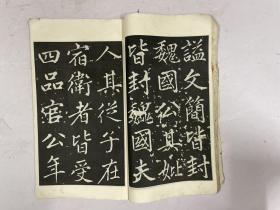 謚文簡皆封
魏國公其妣
皆封魏國夫
人其從子在
宿衛者皆受
四品官公年